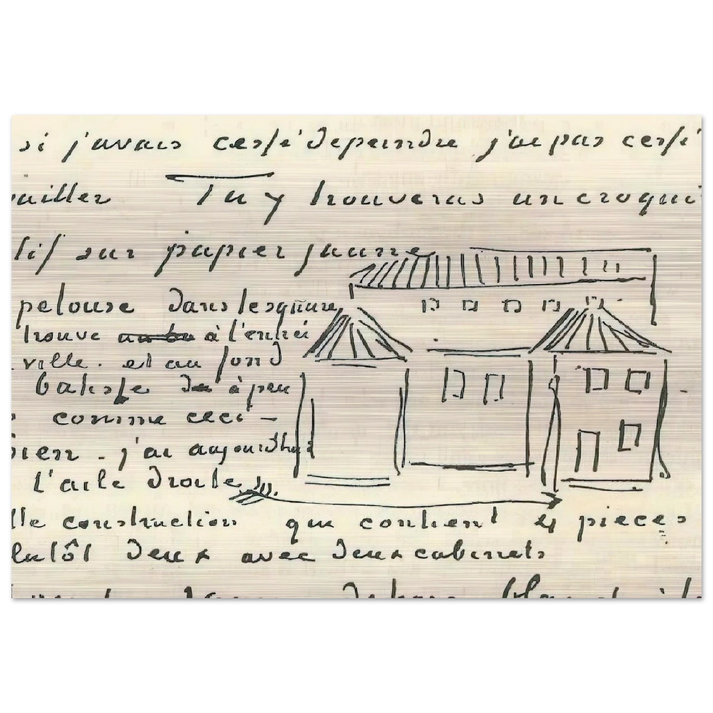 si j'avais cessé de peindre j'ai pas cessé
vailler Tu y trouveras un croqui
tif sur papier jaune
pelouse dans le square
trouve à l'entrée
ville. et au fond
batisse de à peu
comme ceci —
bien - j'ai aujourdhui
l'aile droite
lle construction qui contient 4 pieces
lutôt deux avec deux cabinets